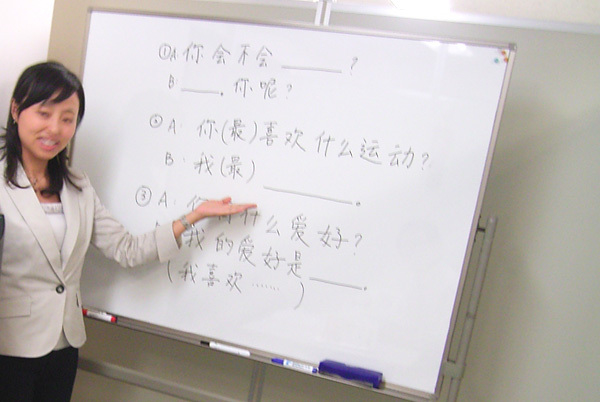 ①A: 你会不会______?
B: ____。你呢?
②A: 你(最)喜欢什么运动?
B: 我(最)________。
③A: 什么爱好?
我的爱好是____。
(我喜欢……)